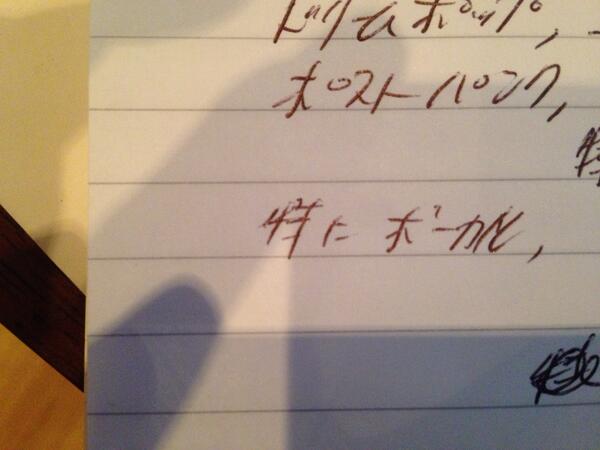 ドリームポップ,
ポストパンク,
特に ボーカル,